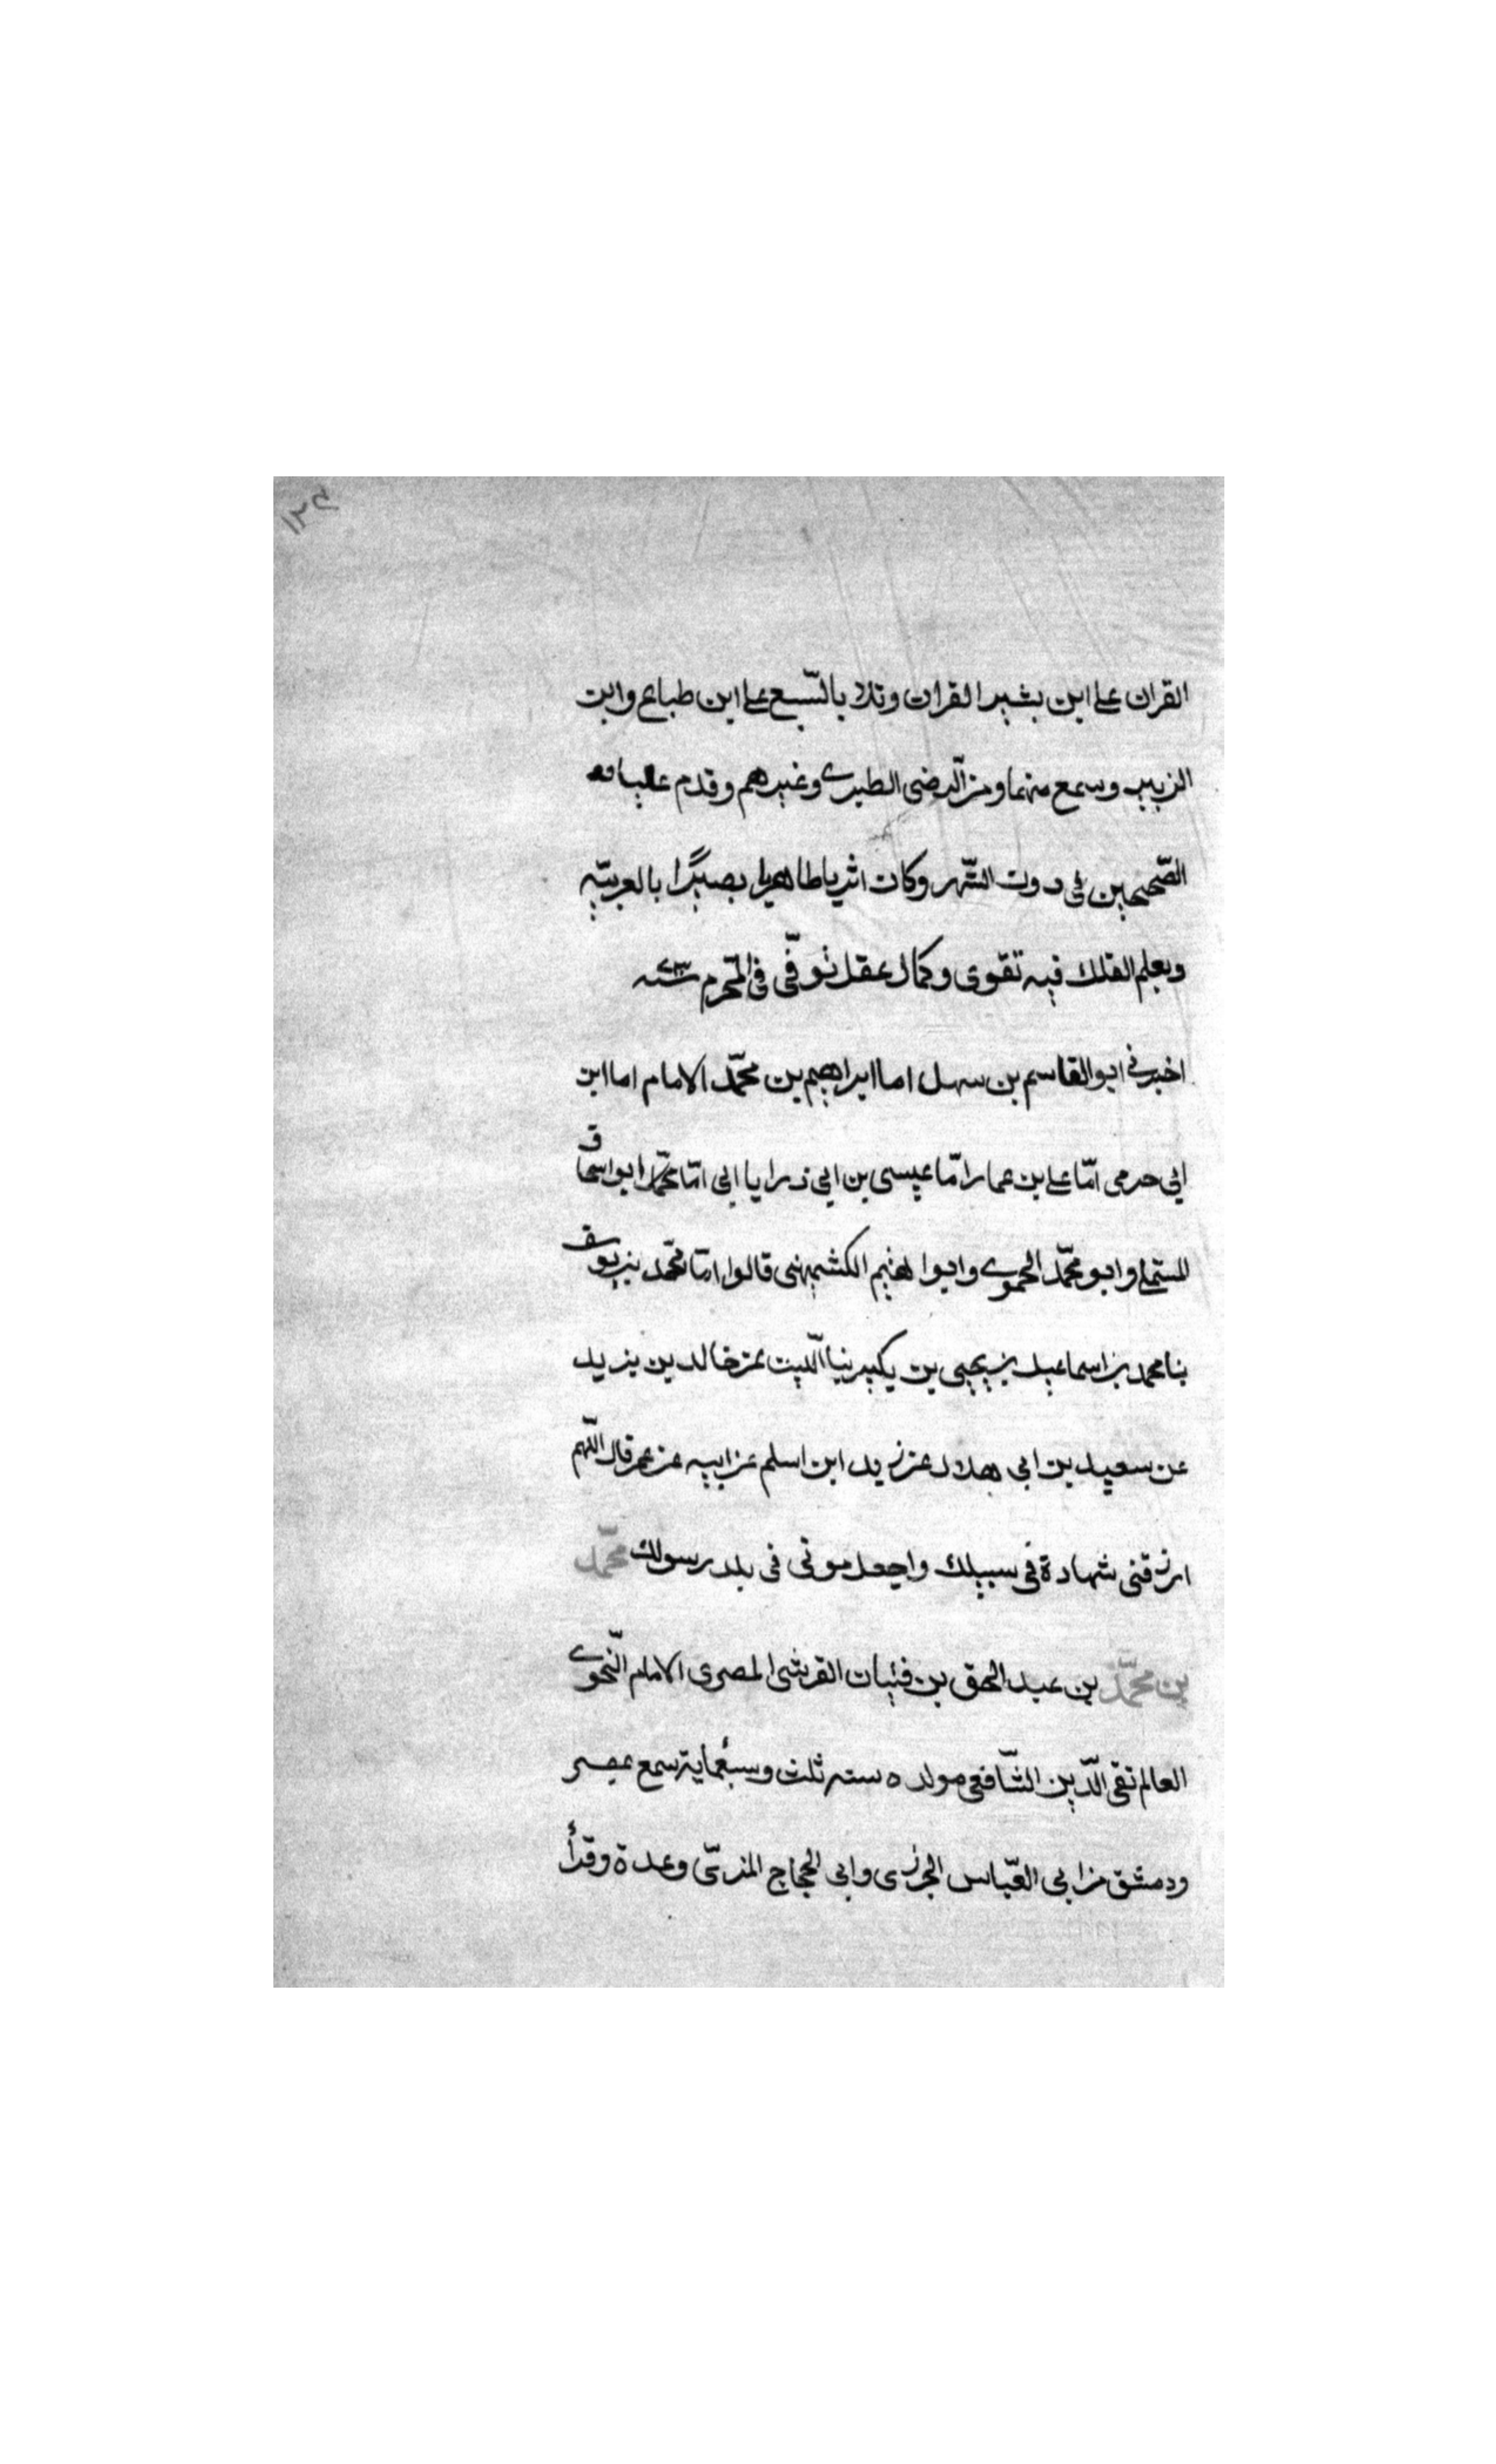 ١٢٤
القران على ابن بشير القران وتلا بالسّبع على ابن طباع وابن
الزبير وسمع منهما ومن الرّضى الطبرى وغيرهم وقدم علينا
الصّحيحين فى دون الشّهر وكان اثريا ظاهريا بصيرًا بالعربيّه
وبعلم الفلك فيه تقوى وكمال عقل توفّى فى المحرّم سنه
اخبرنى ابو القاسم بن سهل اما ابراهيم بن محمّد الامام اما ابن
ابى حرمى امّا على بن عمار امّا عيسى بن ابى ذر ابا ابى امّا محمّد ابو اسحاق
المستملى وابو محمّد الحموى وابوا لهثيم الكشميهنى قالوا امّا محمّد بن يوسف
بنا محمد بن اسماعيل بن يحيى بن بكير بنا اللّيث عن خالد بن يزيد
عن سعيد بن ابى هلال عن زيد ابن اسلم عن ابيه عن عمر قال اللّهم
ارزقنى شهادة فى سبيلك واجعل موتى فى بلد رسولك محمّد
بن محمّد بن عبد الحق بن فتيان القرشى المصرى الامام النّحوى
العالم تقى الدّين الشّافعى مولده سنه ثلث وسبعماية سمع بمصر
ودمشق من ابى العبّاس الجزرى وابى الحجاج المزىّ وعدة وقرأ